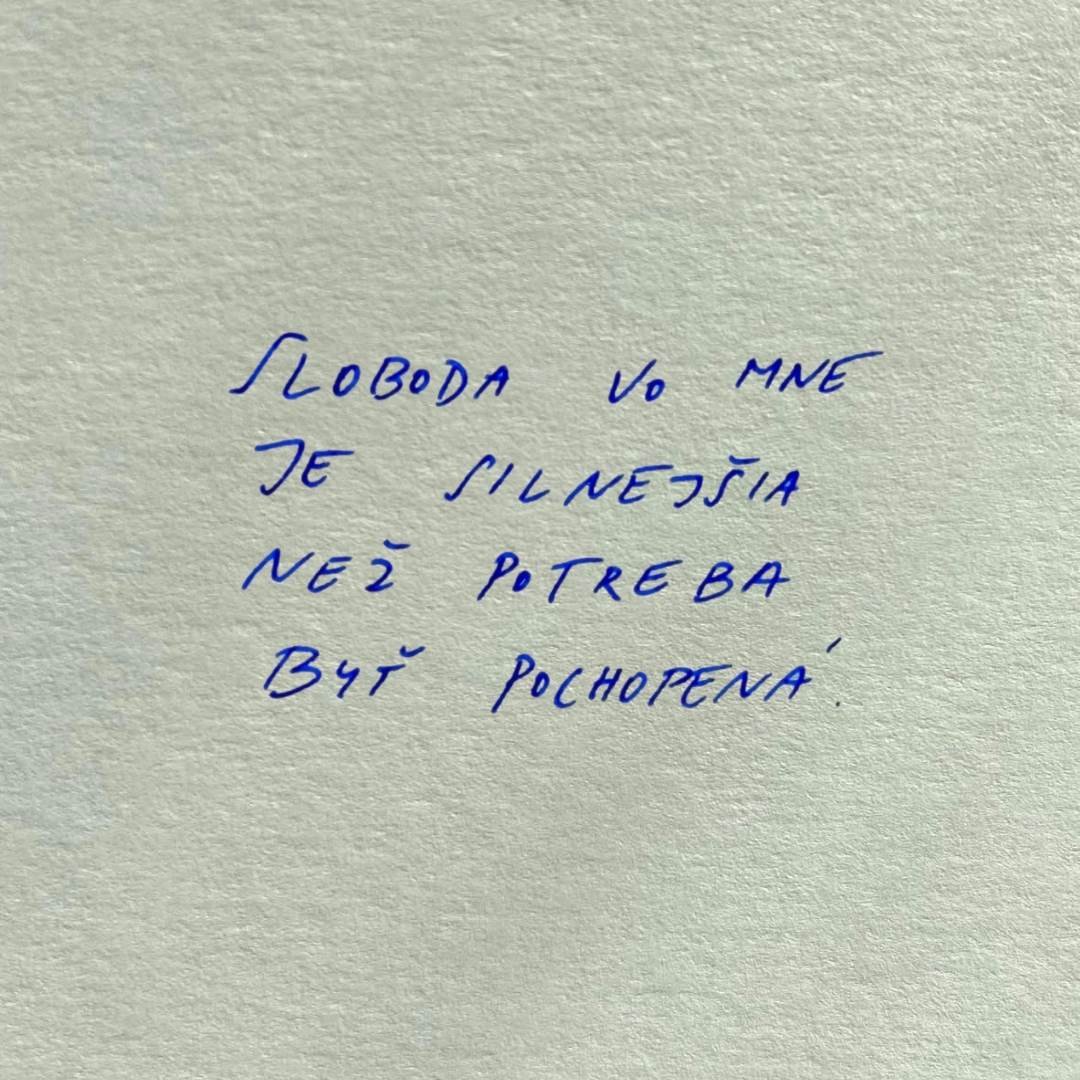 SLOBODA VO MNE
JE SILNEJŠIA
NEŽ POTREBA
BYŤ POCHOPENÁ.